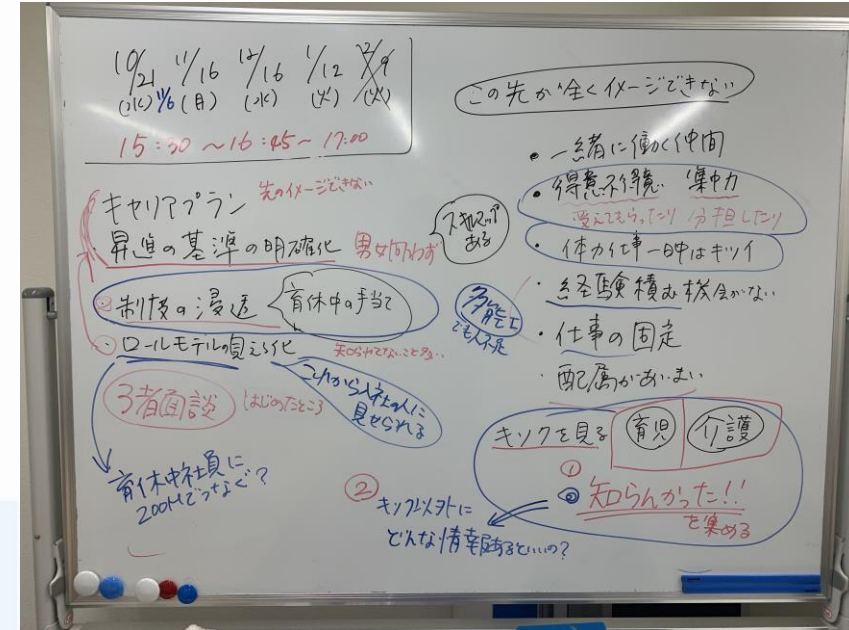 10/21 11/16 12/16 1/12 2/9
(水) 11/6 (月) (水) (火) (火)
15:30 ~16:45~ 17:00
キャリアプラン 先のイメージできない
・昇進の基準の明確化 男女問わず
スキルマップある
制度の浸透 育休中の手当て
ロールモデルの見える化 知られてないこと多い
3者面談 はじめたところ
これから入社の人に見せられる
育休中社員に
ZOOMでつなぐ?
多能工
でも人不足
この先が全くイメージできない
・一緒に働く仲間
・得意不得意 集中力
変えてもらったり 分担したり
・体力仕事一日中はキツイ
・経験積む機会がない
・仕事の固定
・配属があいまい
キソクを見る 育児 介護
①
② 知らんかった!!
を集める
② キソク以外に
どんな情報あるといいの?